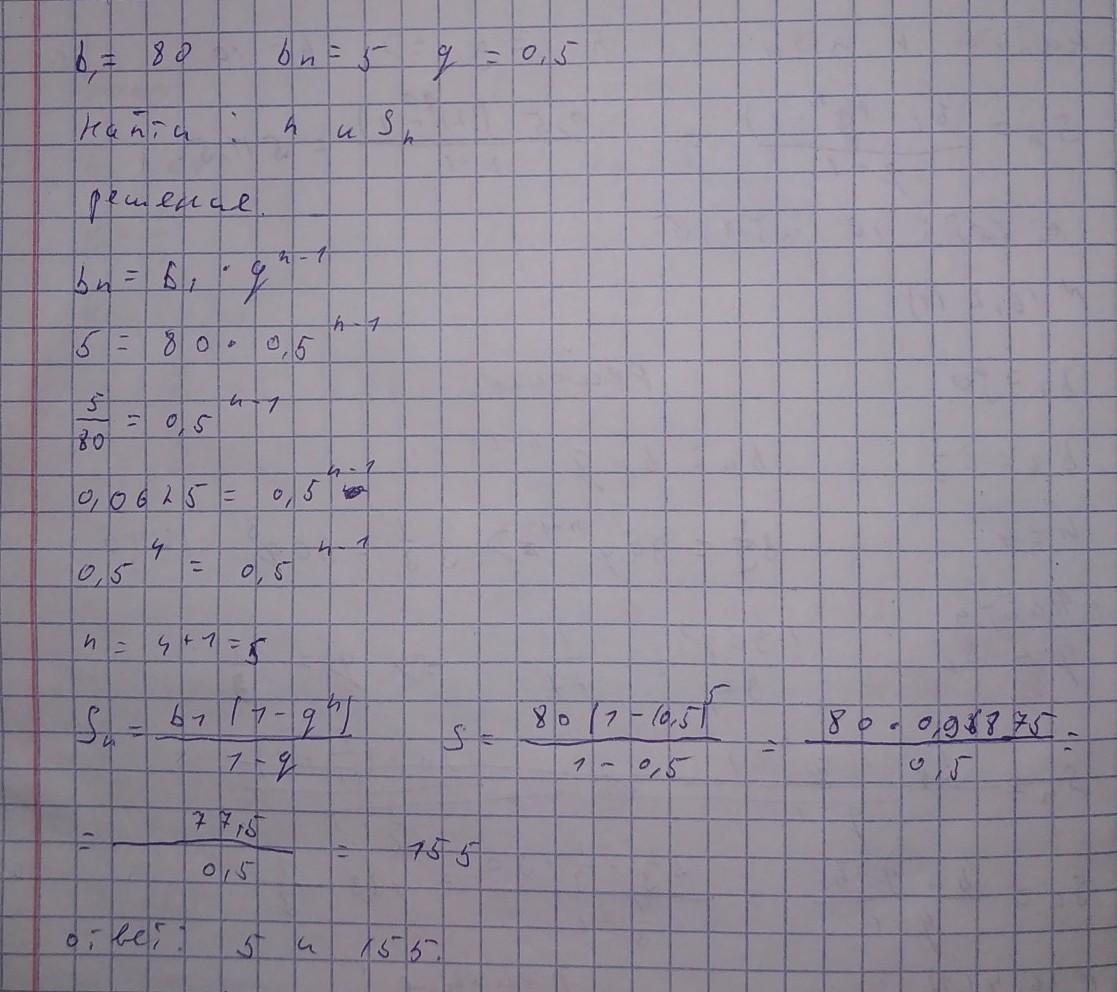 b₁ = 80 bn = 5 q = 0,5
Найти : n и Sn
решение.
bn = b₁ · q^n-1
5 = 80 · 0,5^n-1
5/80 = 0,5^n-1
0,0625 = 0,5^n-1
0,5^4 = 0,5^n-1
n = 4+1 = 5
Sn = b1(1-q^n)/1-q S = 80(1-(0,5)^5/1-0,5 = 80 · 0,96875/0,5 =
= 77,5/0,5 = 155
ответ: 5 и 155.